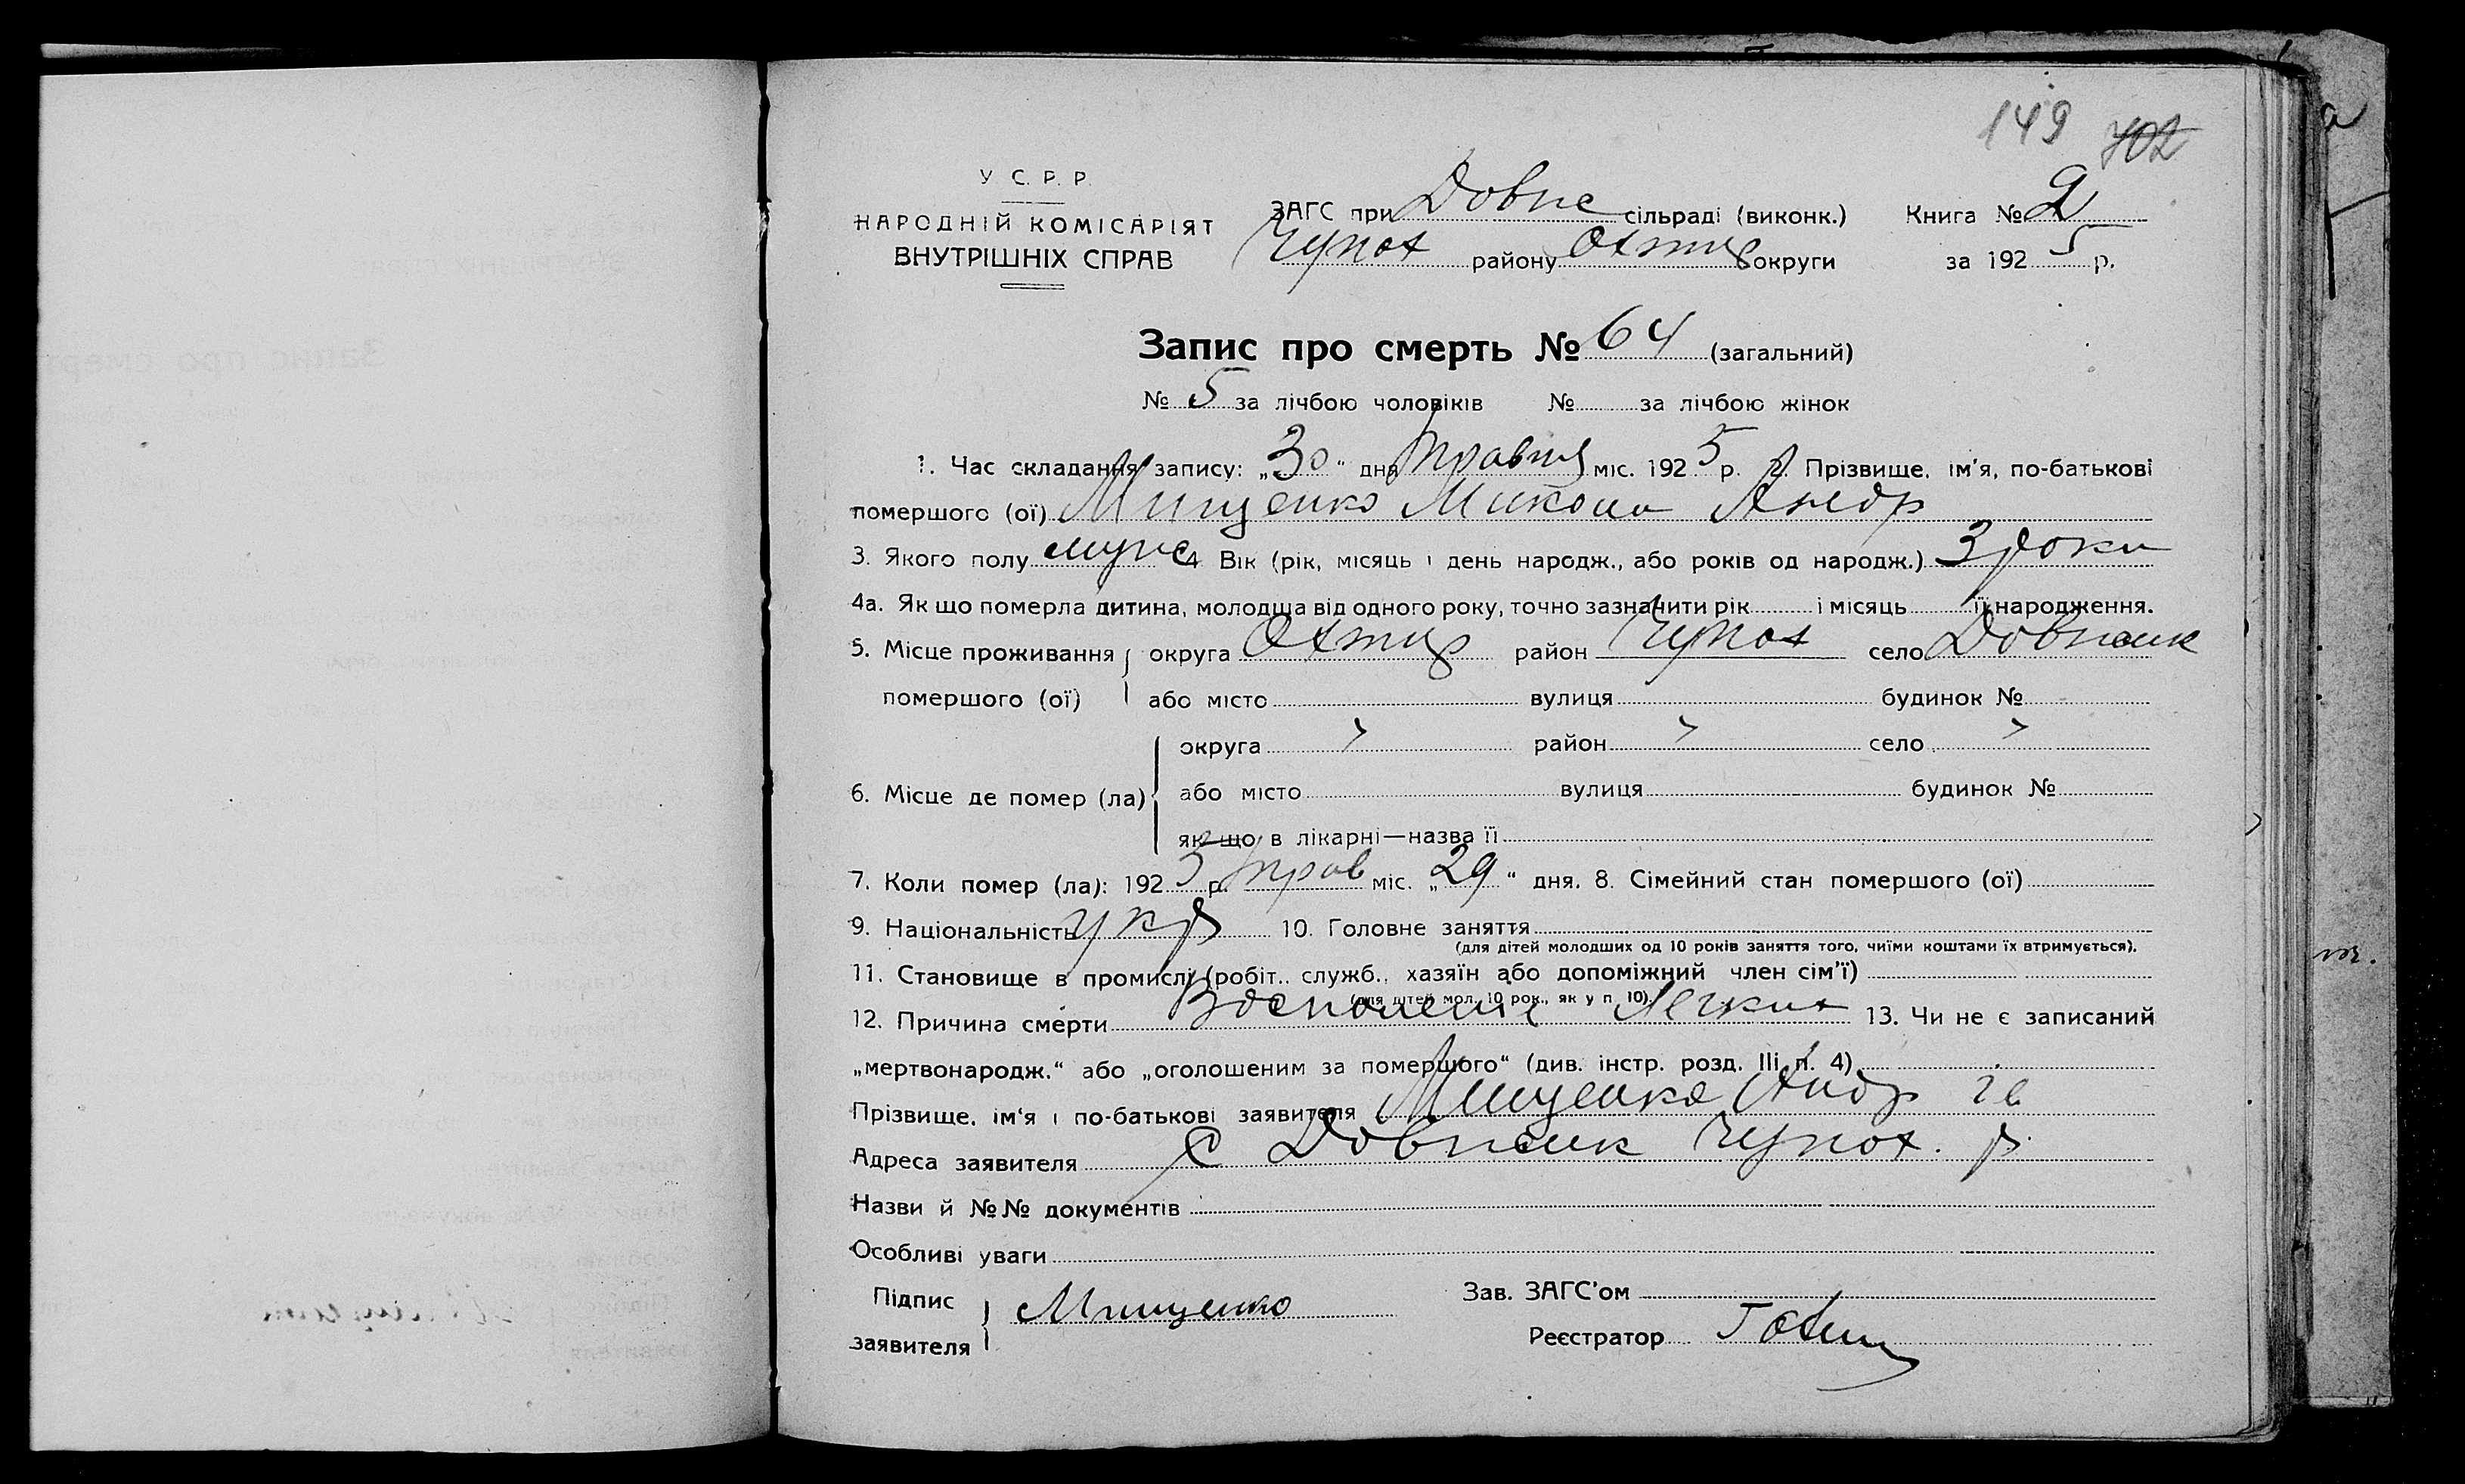 149 702
У С. Р. Р.
НАРОДНІЙ КОМІСАРІЯТ
ВНУТРІШНІХ СПРАВ
ЗАГС при Довже сільраді (виконк.) Книга № 2
Чупах району Охтир округи за 1925 р.
Запис про смерть № 64 (загальний)
№ 5 за лічбою чоловіків № за лічбою жінок
1. Час складання запису: „30“ дня травня міс. 1925 р. 2. Прізвище, ім'я, по-батькові
помершого (ої) Мищенко Микола Андр
3. Якого полу муж 4 Вік (рік, місяць і день народж., або років од народж.) 3 роки
4а. Як що померла дитина, молодша від одного року, точно зазначити рік і місяць її народження.
5. Місце проживання округа Охтир район Чупах село Довжик
помершого (ої) або місто вулиця будинок №
округа район село
6. Місце де помер (ла) або місто вулиця будинок №
як що в лікарні—назва її
7. Коли помер (ла): 1925 р. трав міс. „29“ дня. 8. Сімейний стан помершого (ої)
9. Національність укр 10. Головне заняття
(для дітей молодших од 10 років заняття того, чиїми коштами їх втримується).
11. Становище в промислі (робіт., служб., хазяїн або допоміжний член сім'ї)
(для дітей мол. 10 рок., як у п. 10).
12. Причина смерти Восполение Легких 13. Чи не є записаний
„мертвонародж.“ або „оголошеним за помершого“ (див. інстр. розд. III п. 4)
Прізвище, ім'я і по-батькові заявителя Мищенко Андр
Адреса заявителя с Довжик Чупах. р.
Назви й №№ документів
Особливі уваги
Підпис заявителя Мищенко
Зав. ЗАГС'ом
Реєстратор